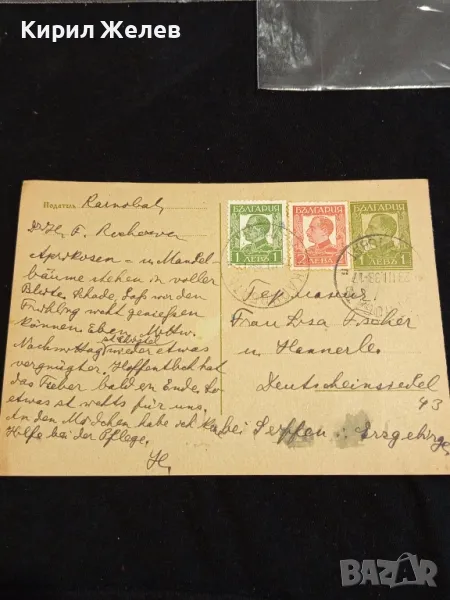 Кирил Желев
Податель Karnobat,
БЪЛГАРИЯ
1 ЛЕВЪ 1
БЪЛГАРИЯ
2 ЛЕВА 2
БЪЛГАРИЯ
1 ЛЕВЪ 1
Aprikosen = u. Mandel
bäume stehen in voller
Blüte. Schade, daß wir den
Frühling nicht genießen
können. Eben
Nachmittag wieder etwas
vergnügter. Hoffentlich hat
das Fieber bald ein Ende. So
etwas ist nichts für uns.
An den Mädchen habe ich
Hilfe bei der Pflege.
H.
Германия
Frau Lisa Fischer
u. Hannerle.
Deutscheinsiedel
43
bei Erzgebirge
BAZAR